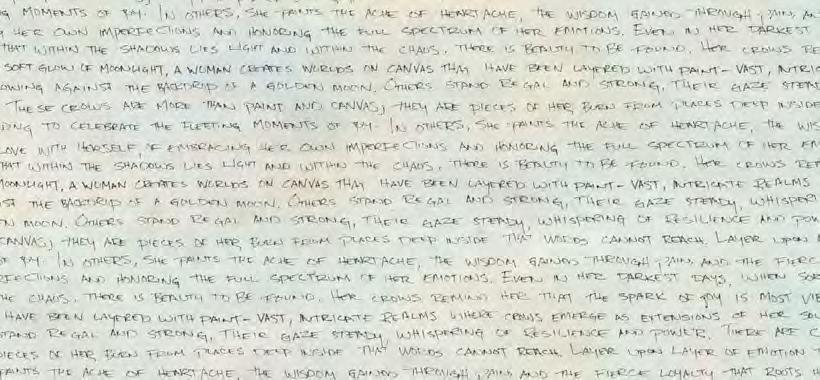 G MOMENTS OF JOY. IN OTHERS, SHE PAINTS THE ACHE OF HEARTACHE, THE WISDOM GAINED THROUGH PAIN, AN
HER OWN IMPERFECTIONS AND HONORING THE FULL SPECTRUM OF HER EMOTIONS. EVEN IN HER DARKEST
THAT WITHIN THE SHADOWS LIES LIGHT AND WITHIN THE CHAOS, THERE IS BEAUTY TO BE FOUND. HER CROWS RE
SOFT GLOW OF MOONLIGHT, A WOMAN CREATES WORLDS ON CANVAS THAT HAVE BEEN LAYERED WITH PAINT - VAST, INTRIC
OWING AGAINST THE BACKDROP OF A GOLDEN MOON. OTHERS STAND REGAL AND STRONG, THEIR GAZE STEAD
THESE CROWS ARE MORE THAN PAINT AND CANVAS; THEY ARE PIECES OF HER, BORN FROM PLACES DEEP INSIDE
DING TO CELEBRATE THE FLEETING MOMENTS OF JOY. IN OTHERS, SHE PAINTS THE ACHE OF HEARTACHE, THE WIS
LOVE WITH HERSELF, OF EMBRACING HER OWN IMPERFECTIONS AND HONORING THE FULL SPECTRUM OF HER EM
HAT WITHIN THE SHADOWS LIES LIGHT AND WITHIN THE CHAOS, THERE IS BEAUTY TO BE FOUND. HER CROWS REM
MOONLIGHT, A WOMAN CREATES WORLDS ON CANVAS THAT HAVE BEEN LAYERED WITH PAINT - VAST, INTRICATE REALMS
ST THE BACKDROP OF A GOLDEN MOON. OTHERS STAND REGAL AND STRONG, THEIR GAZE STEADY, WHISPERI
N MOON. OTHERS STAND REGAL AND STRONG, THEIR GAZE STEADY, WHISPERING OF RESILIENCE AND POW
CANVAS; THEY ARE PIECES OF HER, BORN FROM PLACES DEEP INSIDE THAT WORDS CANNOT REACH. LAYER UPON
OF JOY. IN OTHERS, SHE PAINTS THE ACHE OF HEARTACHE, THE WISDOM GAINED THROUGH PAIN, AND THE FIERC
RFECTIONS AND HONORING THE FULL SPECTRUM OF HER EMOTIONS. EVEN IN HER DARKEST DAYS, WHEN SOR
HE CHAOS, THERE IS BEAUTY TO BE FOUND. HER CROWS REMIND HER THAT THE SPARK OF JOY IS MOST VI
HAVE BEEN LAYERED WITH PAINT - VAST, INTRICATE REALMS WHERE CROWS EMERGE AS EXTENSIONS OF HER SOU
STAND REGAL AND STRONG, THEIR GAZE STEADY, WHISPERING OF RESILIENCE AND POWER. THERE ARE C
PIECES OF HER, BORN FROM PLACES DEEP INSIDE THAT WORDS CANNOT REACH. LAYER UPON LAYER OF EMOTION
PAINTS THE ACHE OF HEARTACHE, THE WISDOM GAINED THROUGH PAIN, AND THE FIERCE LOYALTY THAT ROOTS H